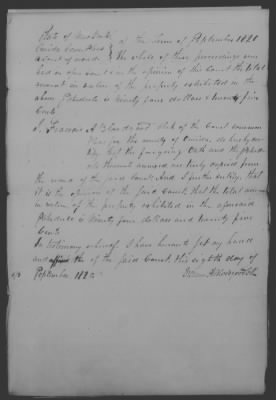 State of New York } of the term of September 1820
Oneida Common Pleas } The whole of these proceedings
a Court of record } in the opinion of this Court the total
amount in value of the property exhibited in the
above Schedule is Ninety four dollars & twenty five
Cents
I, Francis A Bloodgood Clerk of the Court common
Pleas for the county of Oneida, do hereby
that the foregoing Oath and the Schedule
annexed are truly copied from
the records of the said Court. And I further certify, that
it is the opinion of the said Court, that the total amount
in value of the property exhibited in the aforesaid
Schedule is Ninety four dollars and twenty five
Cents
In testimony whereof I have hereunto set my hand
and the of the said Court, this eighth day of
September 1820